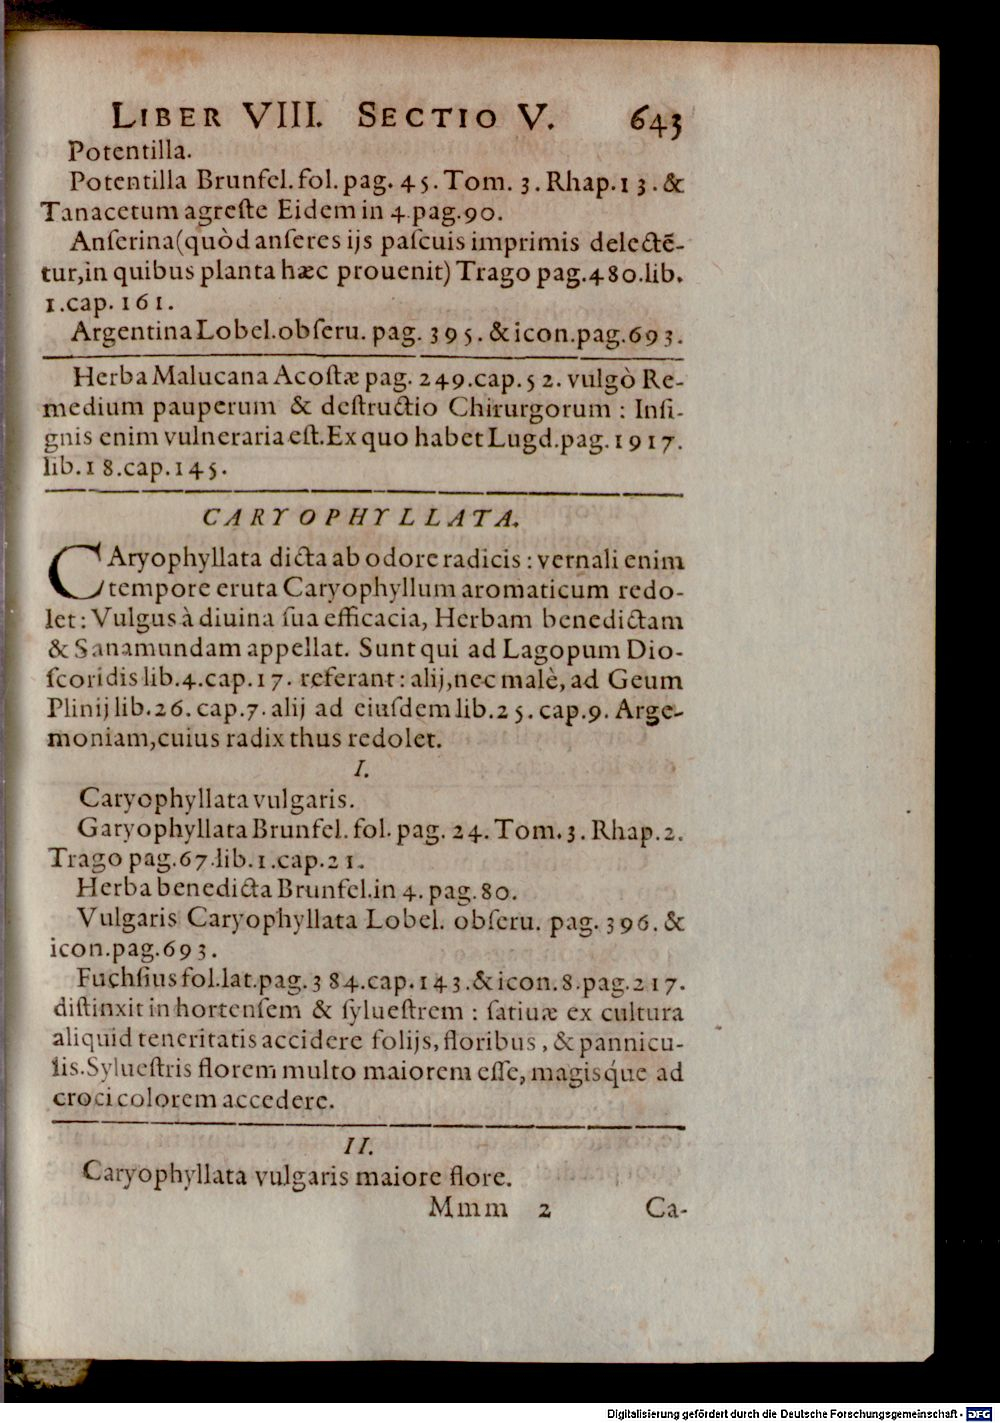 LIBER VIII. SECTIO V. 643
Potentilla.
Potentilla Brunſel. fol. pag. 45. Tom. 3. Rhap. 13. &
Tanacetum agreſte Eidem in 4. pag. 90.
Anſerina (quòd anſeres ijs paſcuis imprimis delectē-
tur, in quibus planta hæc prouenit) Trago pag. 480. lib.
1. cap. 161.
Argentina Lobel. obſeru. pag. 395. & icon. pag. 693.
Herba Malucana Acoſtæ pag. 249. cap. 52. vulgò Re-
medium pauperum & deſtructio Chirurgorum : Inſi-
gnis enim vulneraria eſt. Ex quo habet Lugd. pag. 1917.
lib. 18. cap. 145.
CARYOPHYLLATA.
CAryophyllata dicta ab odore radicis : vernali enim
tempore eruta Caryophyllum aromaticum redo-
let : Vulgus à diuina ſua efficacia, Herbam benedictam
& Sanamundam appellat. Sunt qui ad Lagopum Dio-
ſcoridis lib. 4. cap. 17. referant : alij, nec malè, ad Geum
Plinij lib. 26. cap. 7. alij ad eiuſdem lib. 25. cap. 9. Arge-
moniam, cuius radix thus redolet.
I.
Caryophyllata vulgaris.
Garyophyllata Brunſel. fol. pag. 24. Tom. 3. Rhap. 2.
Trago pag. 67. lib. 1. cap. 21.
Herba benedicta Brunſel. in 4. pag. 80.
Vulgaris Caryophyllata Lobel. obſeru. pag. 396. &
icon. pag. 693.
Fuchſius fol. lat. pag. 384. cap. 143. & icon. 8. pag. 217.
diſtinxit in hortenſem & ſylueſtrem : ſatiuæ ex cultura
aliquid teneritatis accidere folijs, floribus, & pannicu-
lis. Sylueſtris florem multo maiorem eſſe, magisq́ue ad
croci colorem accedere.
II.
Caryophyllata vulgaris maiore flore.
Mmm 2 Ca-
Digitalisierung gefördert durch die Deutsche Forschungsgemeinschaft - DFG